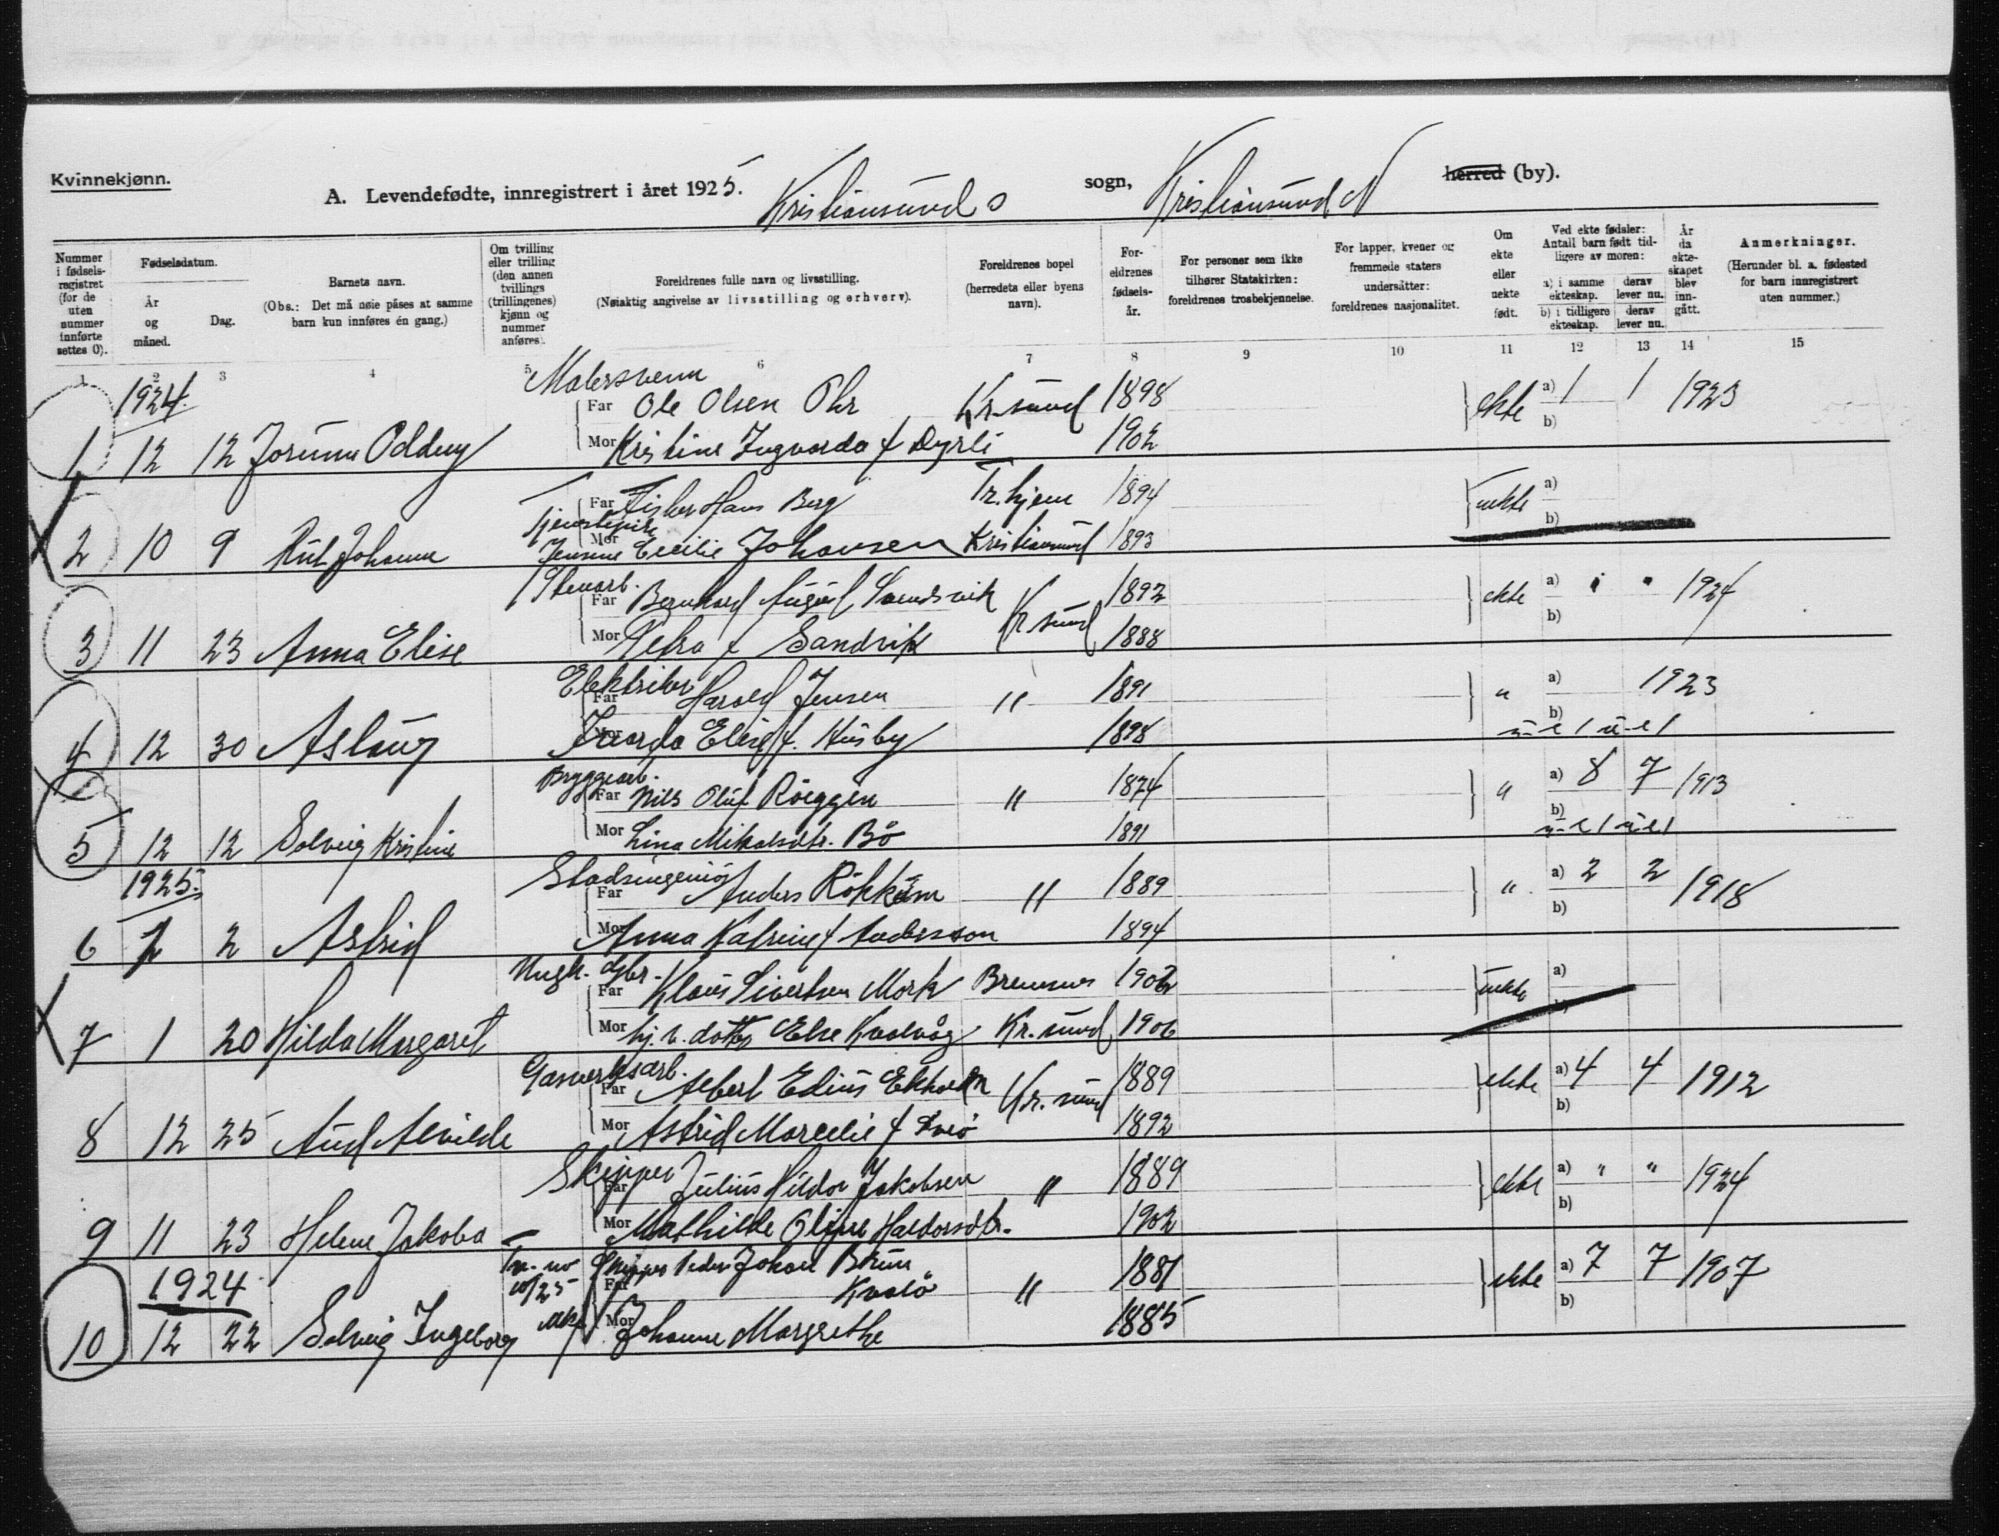 Kvinnekjønn.
A. Levendefødte, innregistrert i året 1925. Kristiansund s sogn, Kristiansund N herred (by).
Nummer i fødselsregistret (for de uten nummer innførte settes 0).
Fødselsdatum.
År og måned.
Dag.
Barnets navn.
(Obs.: Det må nøie påses at samme barn kun innføres én gang.)
Om tvilling eller trilling (den annen tvillings (trillingenes) kjønn og nummer anføres).
Foreldrenes fulle navn og livsstilling.
(Nøiaktig angivelse av livsstilling og erhverv).
Foreldrenes bopel (herredets eller byens navn).
Foreldrenes fødselsår.
For personer som ikke tilhører Statskirken: foreldrenes trosbekjennelse.
For lapper, kvener og fremmede staters undersåtter: foreldrenes nasjonalitet.
Om ekte eller uekte født.
Ved ekte fødsler: Antall barn født tidligere av moren:
a) i samme ekteskap. derav lever nu.
b) i tidligere ekteskap. derav lever nu.
År da ekteskapet blev inngått.
Anmerkninger.
(Herunder bl. a. fødested for barn innregistrert uten nummer.)
1 2 3 4 5 6 7 8 9 10 11 12 13 14 15
1924. Malersvenn
Far Ole Olsen Ohr Kr.sund 1898 ekte a) 1 1 1923
b)
1 12 12 Jorunn Oddny Mor Kristine Ingvarda f Dyrli 1902
Far Fisker Hans Berg Tr.hjem 1894 uekte a)
Tjenestepike b)
2 10 9 Rut Johanne Mor Jensine Cecilie Johansen Kristiansund 1893
Stenarb.
Far Bernhard August Sandsvik Kr sund 1892 ekte a) " " 1924
b)
3 11 23 Anna Elise Mor Petra f Sandvik 1888
Elektriker
Far Harald Jensen " 1891 " a) 1923
b)
4 12 30 Aslaug Mor Elise f. Husby 1898
Bryggearb.
Far Nils Oluf Røeggen " 1874 " a) 8 7 1913
b)
5 12 12 Solveig Kristine Mor Lina Mikalsdtr. Bø 1891
1925. Stadsingeniør
Far Anders Røkkum " 1889 " a) 2 2 1918
b)
6 1 2 Astrid Mor Anna Katrine f Andersson 1894
Ungk. gbr.
Far Klaus Sivertsen Mork Bremsnes 1902 uekte a)
b)
7 1 20 Hilda Margaret Mor hj.v. datter Else Kvalvåg Kr.sund 1906
Gasverksarb.
Far Albert Edius Ekholm Kr. sund 1889 ekte a) 4 4 1912
b)
8 12 25 Aud Alvilde Mor Astrid Marcelie f 1892
Skipper
Far Julius Hildor Jakobsen " 1889 ekte a) " " 1924
b)
9 11 23 Helene Jakoba Mor Mathilde Oline Haldorsdtr. 1902
1924 Tv. nr 10/25 Skipper Peder Johan Brun
Far Kvalø " 1881 ekte a) 7 7 1907
b)
10 12 22 Solveig Ingeborg Mor Johanne Margrethe 1885